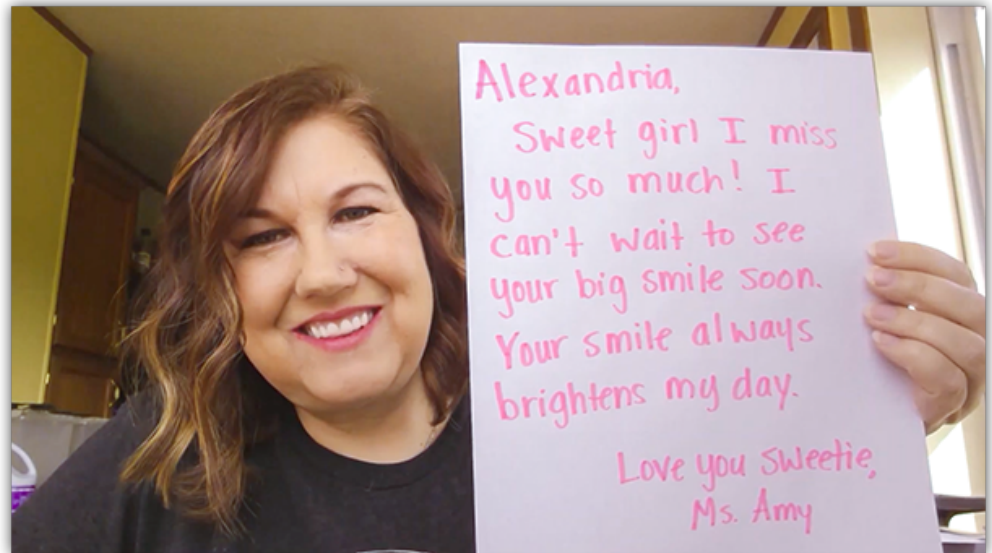 Alexandria,
Sweet girl I miss
you so much! I
can't wait to see
your big smile soon.
Your smile always
brightens my day.
Love you sweetie,
Ms. Amy